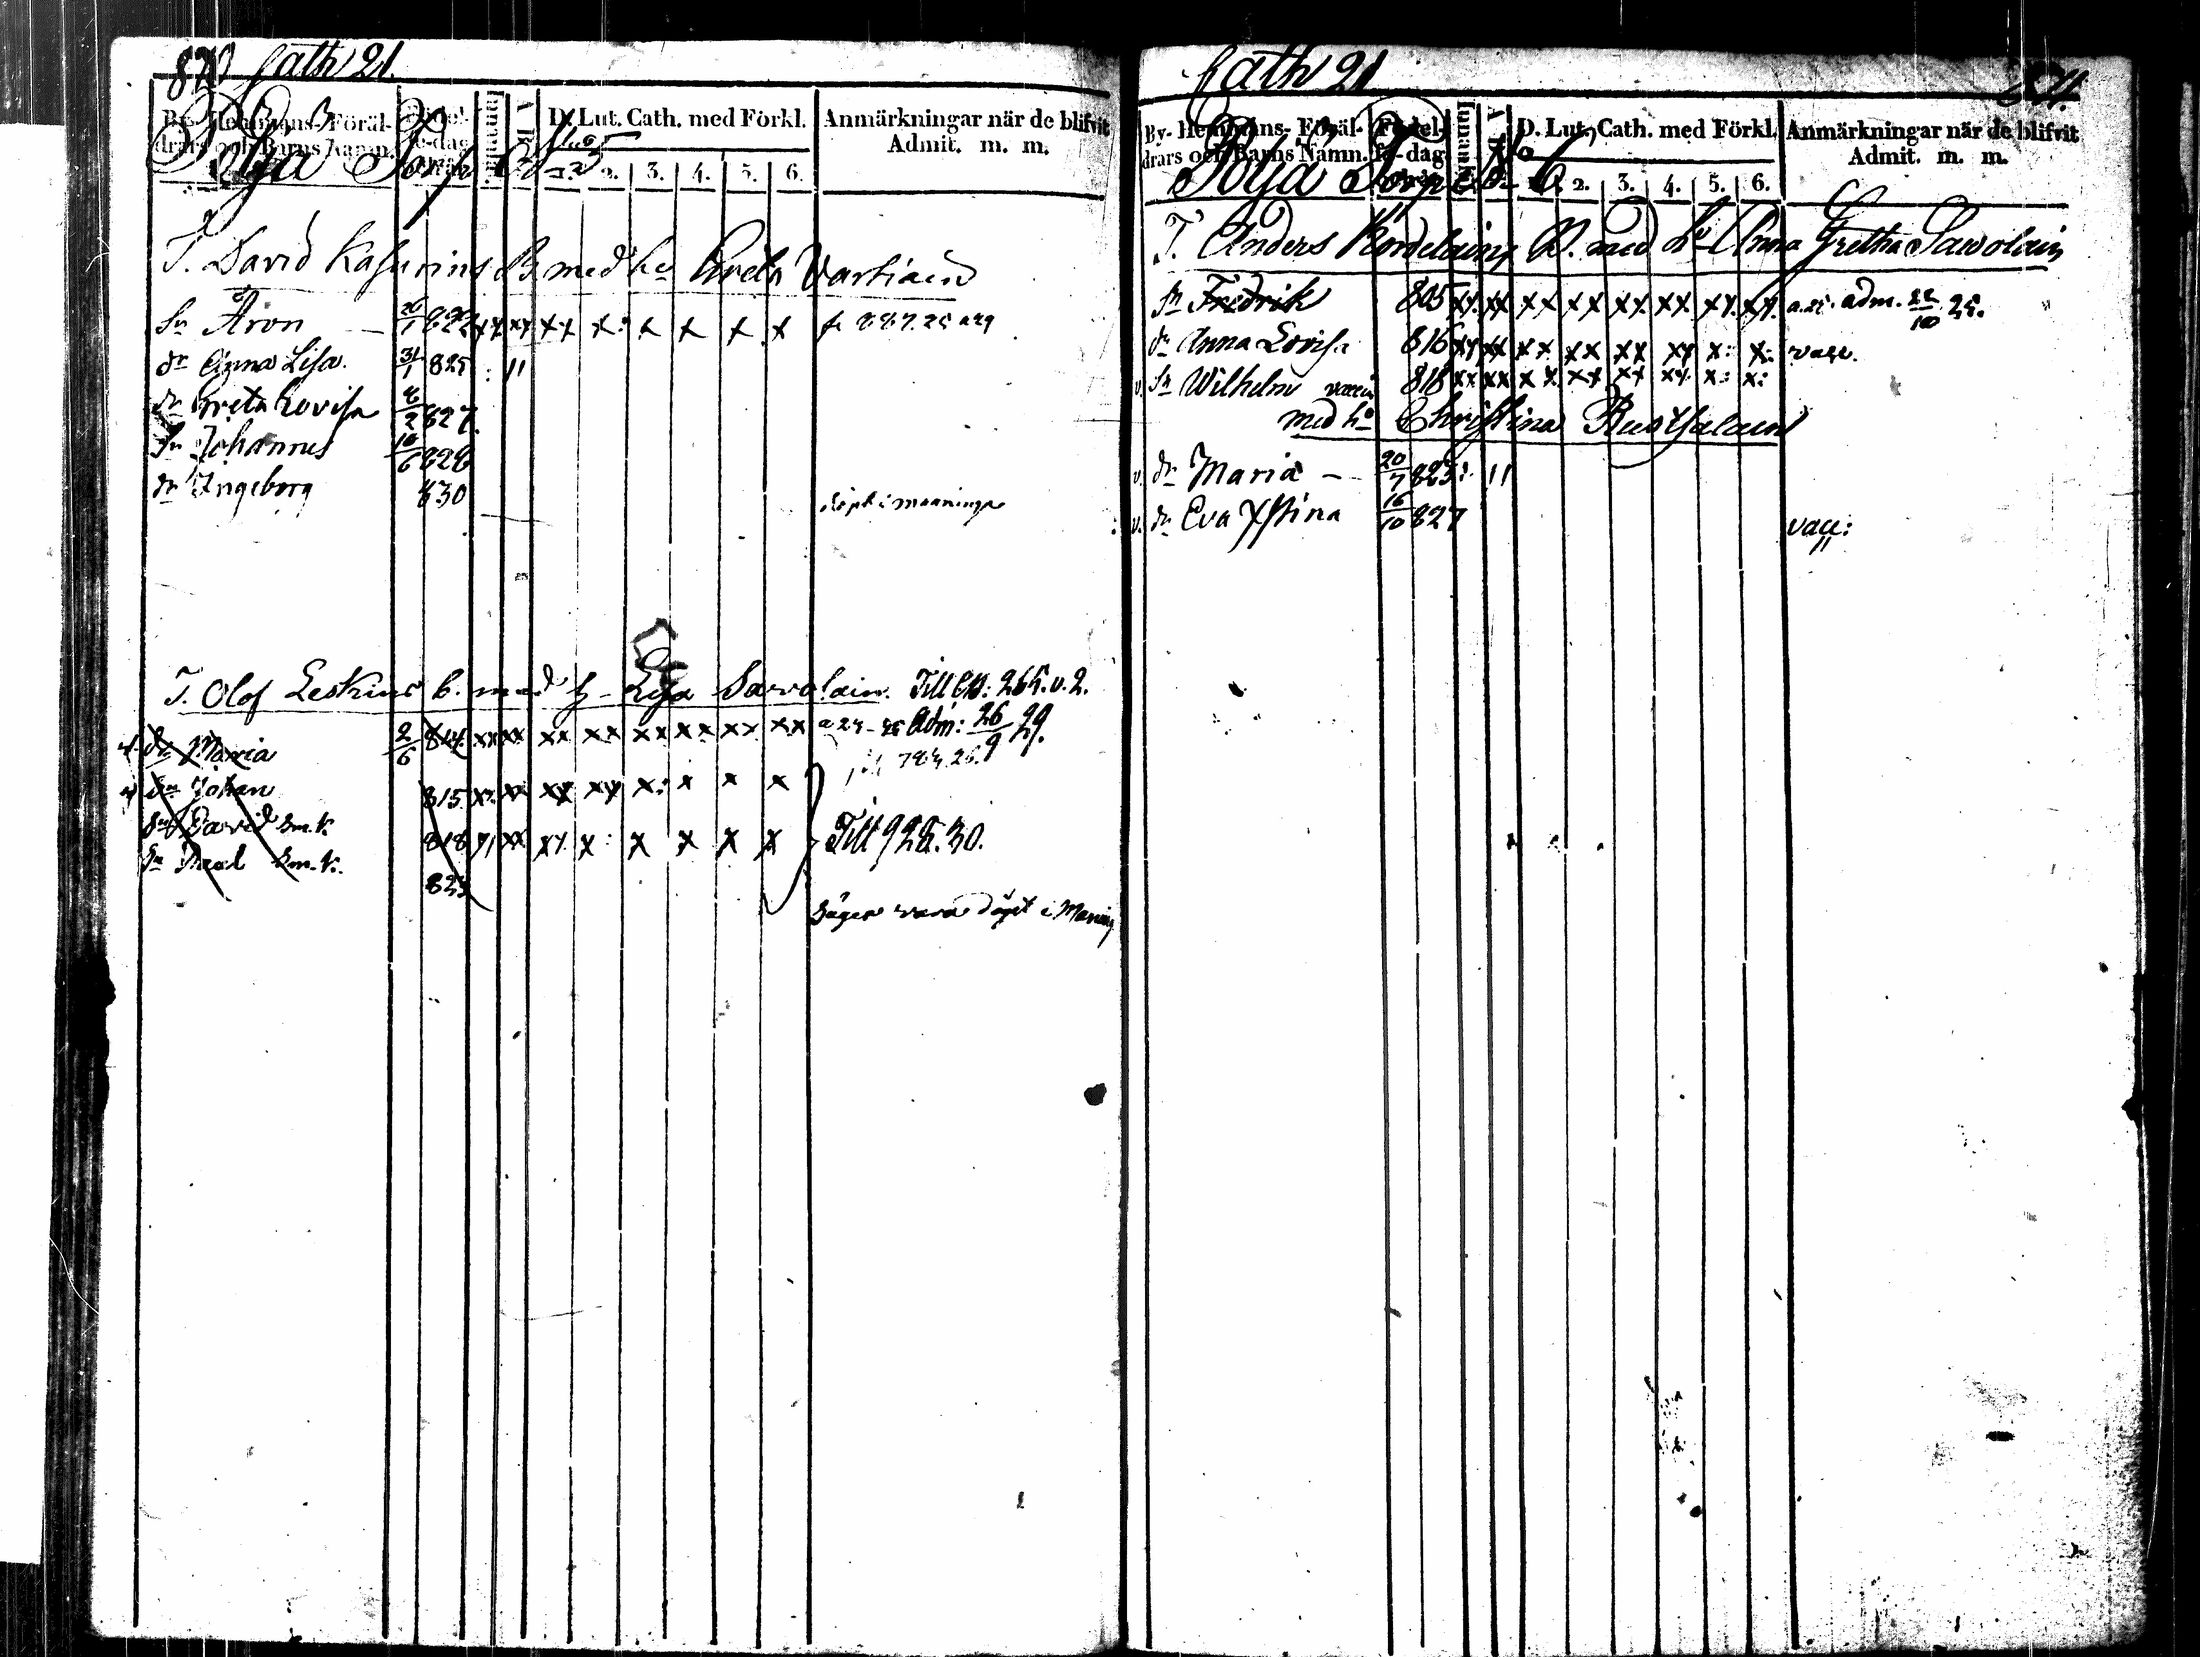 870 Cath 21.
By- Hemmans- Föräl-drars och Barns Namn. Födel-se-dag Innanl. A B D. Lut. Cath. med Förkl. Anmärkningar när de blifvit Admit. m. m.
Polja Torp No 5
1. 2. 3. 4. 5. 6.
T. David Kasurins B med hu Greta Vartiain
Sn Aron — 26/1 822 xx xx xx x: x x x x
dr Anna Lisa. 31/1 825 : 11
dr Greta Lovisa 8/2 827.
Sn Johannes 10/6 828
dr Ingeborg 830 döpt i maaninga
T. Olof Leskins b. med h- Lisa Savolain. Till CB: 265. v. 2.
dr Maria 2/6 814 xx xx xx xx xx xx xx xx Adm: 26/9 29.
Sn Johan 815 x: xx xx xx x: x x x
Sn David Sm. K. 818 x/ xx xx x: x x x x Till 925. 30.
Sn Sm. K. 823
Säges vara döpt i Maning
Cath 21 871.
By- Hemmans- Föräl-drars och Barns Namn. Födel-se-dag Innanl. A B D. Lut. Cath. med Förkl. Anmärkningar när de blifvit Admit. m. m.
Polja Torp No 6
2. 3. 4. 5. 6.
T. Anders Kordelains B. med hu Anna Gretha Sawolain
Sn Fredrik 805 xx. xx xx xx xx. xx. xx. xx. adm. 22/10 25.
dr Anna Lovisa 816 xx xx xx xx xx xx x: x: vacc.
v. Sn Wilhelm vaccin 818 xx xx xx xx xx xx. x: x:
med hu Christina Ruotsalain
v. dr Maria - - 20/7 823 : 11
v. dr Eva Xstina 16/10 827 vacc: